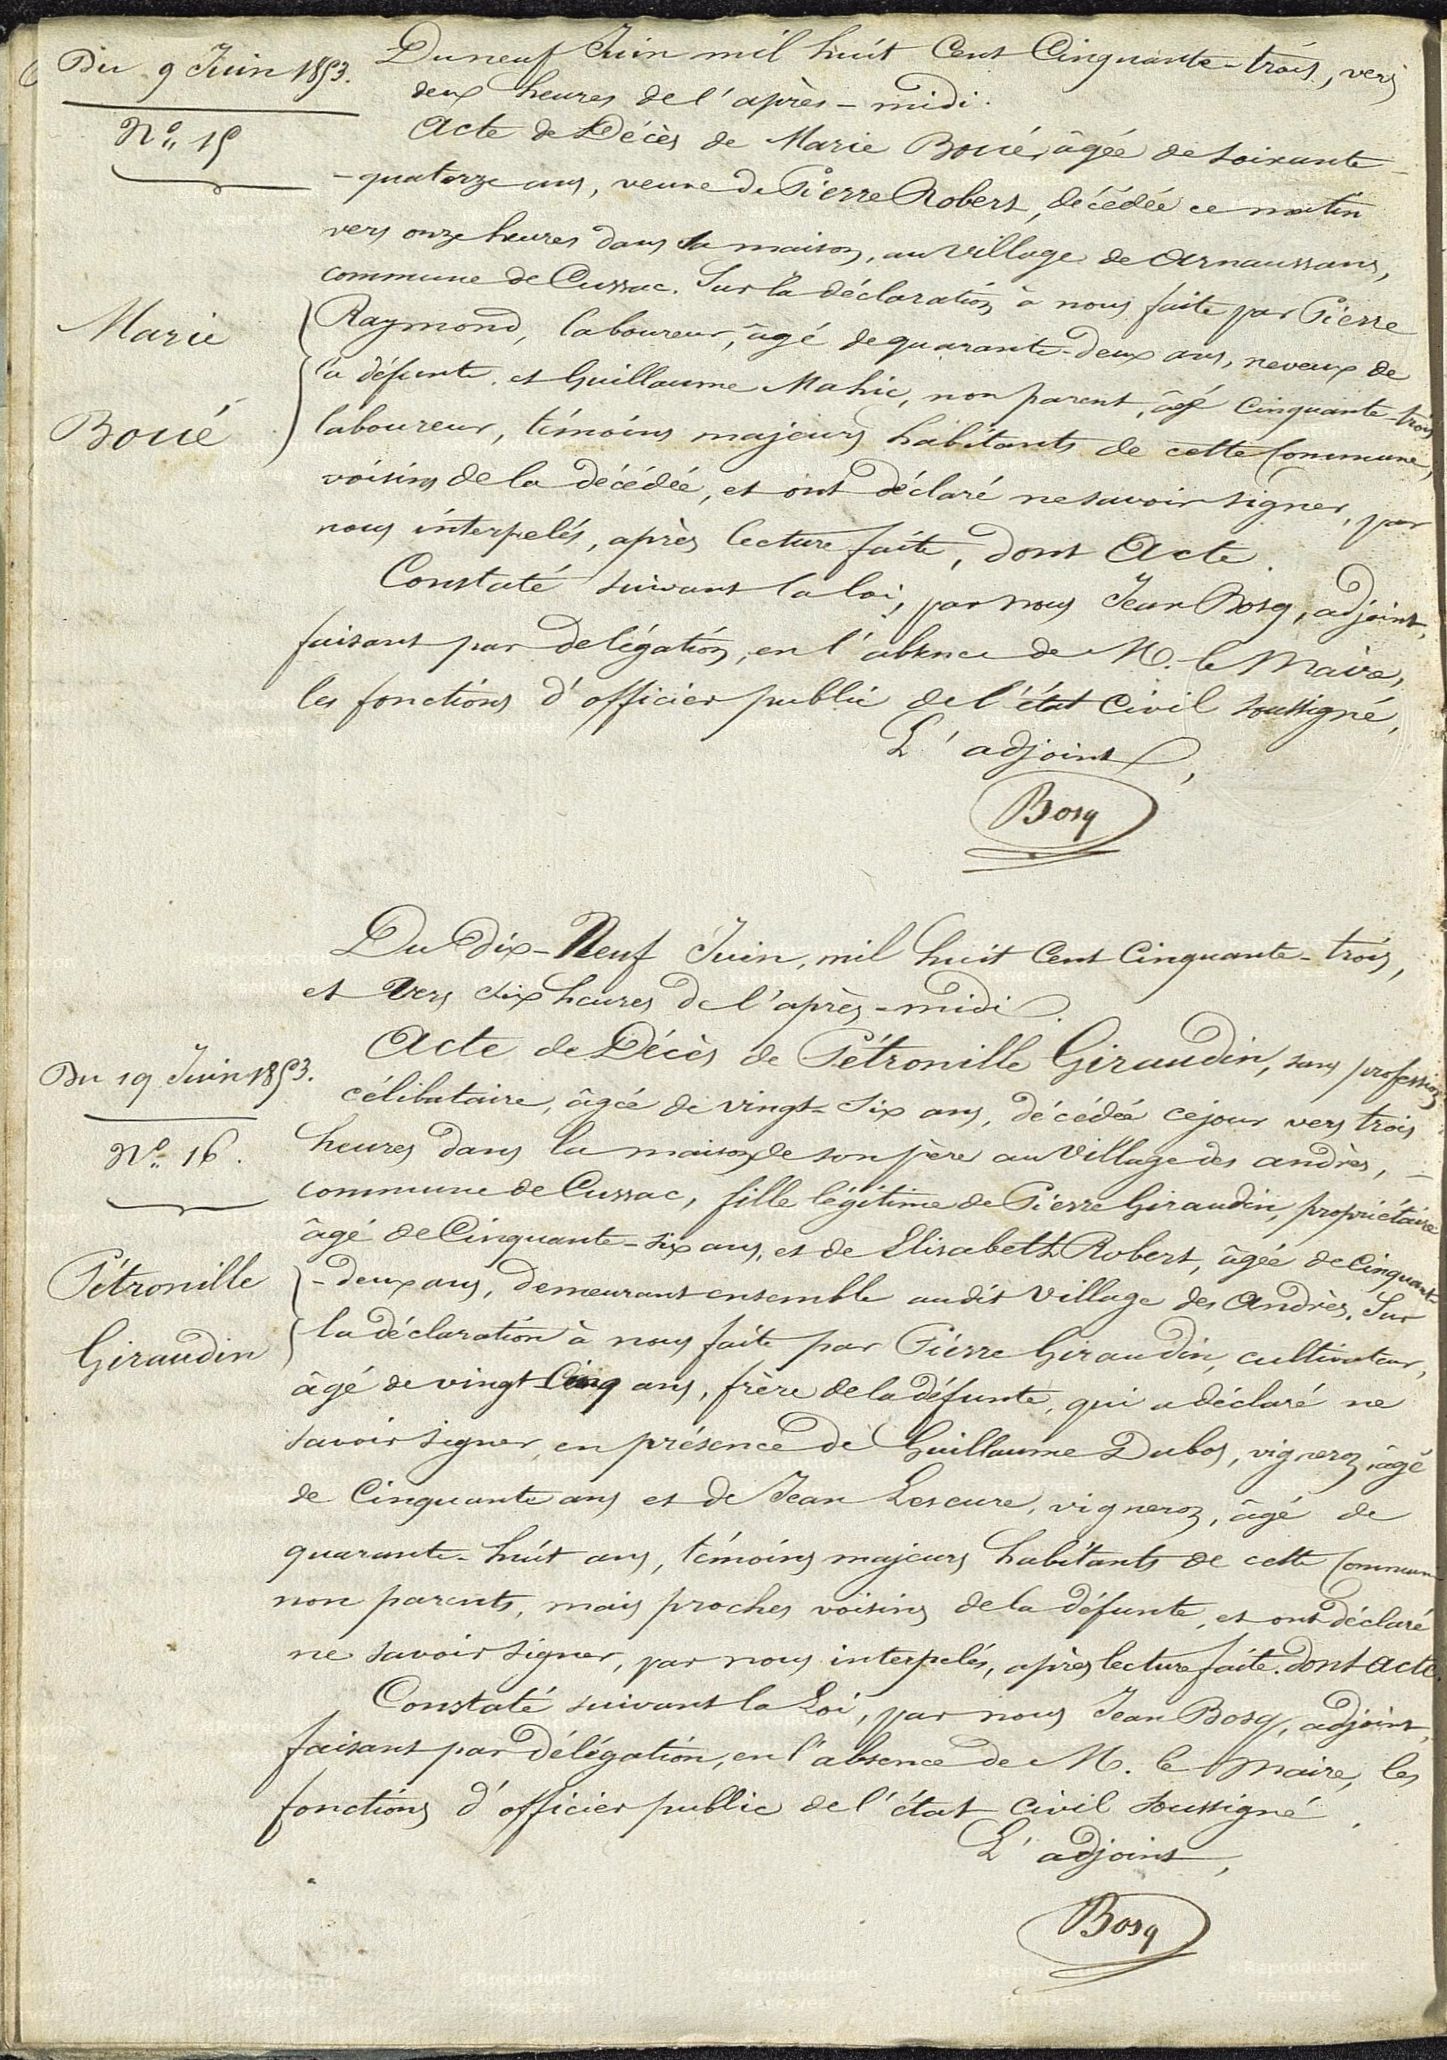 Du 9 Juin 1853.
N° 15
Marie
Boué
Du neuf Juin mil huit Cent Cinquante-trois, vers
deux heures de l'après-midi.
Acte de Décès de Marie Boué, âgée de soixante-
-quatorze ans, veuve de Pierre Robert, décédée ce matin
vers onze heures dans sa maison, au village de Arnaussans,
commune de Cussac. Sur la déclaration à nous faite par Pierre
Raymond, laboureur, âgé de quarante-deux ans, neveux de
la défunte, et Guillaume Mahic, non parent, âgé Cinquante-trois
laboureur, témoins majeurs habitants de cette Commune,
voisins de la décédée, et ont déclaré ne savoir signer, par
nous interpelés, après lecture faite, dont Acte.
Constaté suivant la loi, par nous Jean Bosq, adjoint,
faisant par délégation, en l'absence de M. le Maire,
les fonctions d'officier public de l'état Civil soussigné,
L'adjoint,
Bosq
Du 19 Juin 1853.
N° 16.
Pétronille
Giraudin
Du Dix-Neuf Juin, mil huit Cent Cinquante-trois,
et Vers six heures de l'après-midi.
Acte de Décès de Pétronille Giraudin, sans profession
célibataire, âgée de vingt-six ans, décédée ce jour vers trois
heures dans la maison de son père au Village des andrès,
commune de Cussac, fille légitime de Pierre Giraudin, propriétaire
âgé de Cinquante-six ans, et de Elisabeth Robert, âgée de Cinquante
-deux ans, demeurant ensemble audit Village des Andrès. Sur
la déclaration à nous faite par Pierre Giraudin, cultivateur,
âgé de vingt Cinq ans, frère de la défunte, qui a déclaré ne
savoir signer, en présence de Guillaume Dubos, vigneron, âgé
de Cinquante ans et de Jean Lescure, vigneron, âgé de
quarante-huit ans, témoins majeurs habitants de cette Commune
non parents, mais proches voisins de la défunte, et ont déclaré
ne savoir signer, par nous interpelés, après lecture faite. dont acte.
Constaté suivant la Loi, par nous Jean Bosq, adjoint,
faisant par Délégation, en l'absence de M. le Maire, les
fonctions d'officier public de l'état civil soussigné.
L'adjoint,
Bosq